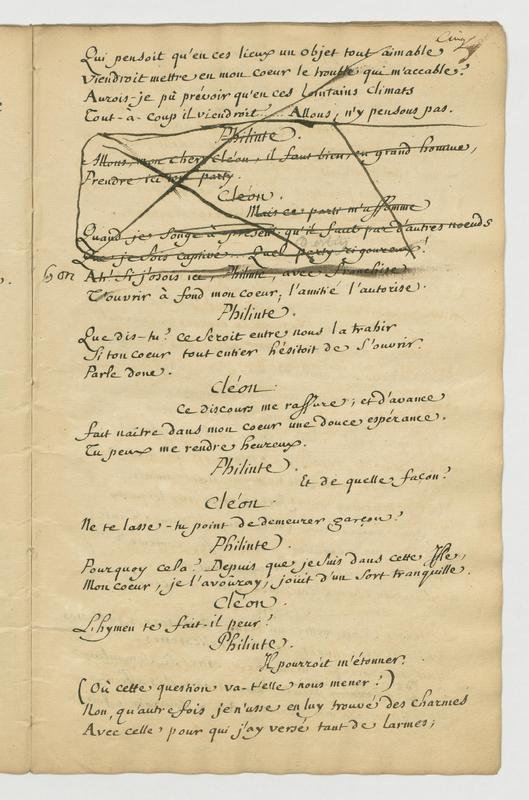 Cinq
Qui pensoit qu'en ces lieux un objet tout aimable
viendroit mettre en mon coeur le trouble qui m'accable?
Aurois-je pû prévoir qu'en ces lointains climats
Tout-à-coup il viendroit.... Allons, n'y pensons pas.
Philinte.
Allons, mon cher Cléon, il faut bien, en grand homme,
Prendre ici ton party.
Cléon.
Mais ce parti m'assomme
Quand je songe à présent qu'il faut par d'autres noeuds
Que je sois captive... Quel party rigoureux!
bon Ah! Si j'osois ici, Philinte, avec franchise
T'ouvrir à fond mon coeur, l'amitié l'autorise.
Philinte.
Que dis-tu? ce seroit entre nous la trahir
Si ton coeur tout entier hésitoit de s'ouvrir.
Parle donc.
Cléon.
Ce discours me rassure; et d'avance
fait naitre dans mon coeur une douce espérance.
Tu peux me rendre heureux.
Philinte.
Et de quelle façon?
Cléon.
Ne te lasse-tu point de demeurer garçon?
Philinte.
Pourquoy cela? Depuis que je suis dans cette Isle,
Mon coeur, je l'avoüray, jouit d'un sort tranquille.
Cléon.
L'hymen te fait-il peur?
Philinte.
Il pourroit m'étonner.
(Où cette question va-t'elle nous mener?)
Non, qu'autre fois je n'usse en luy trouvé des charmes
Avec celle pour qui j'ay versé tant de larmes;